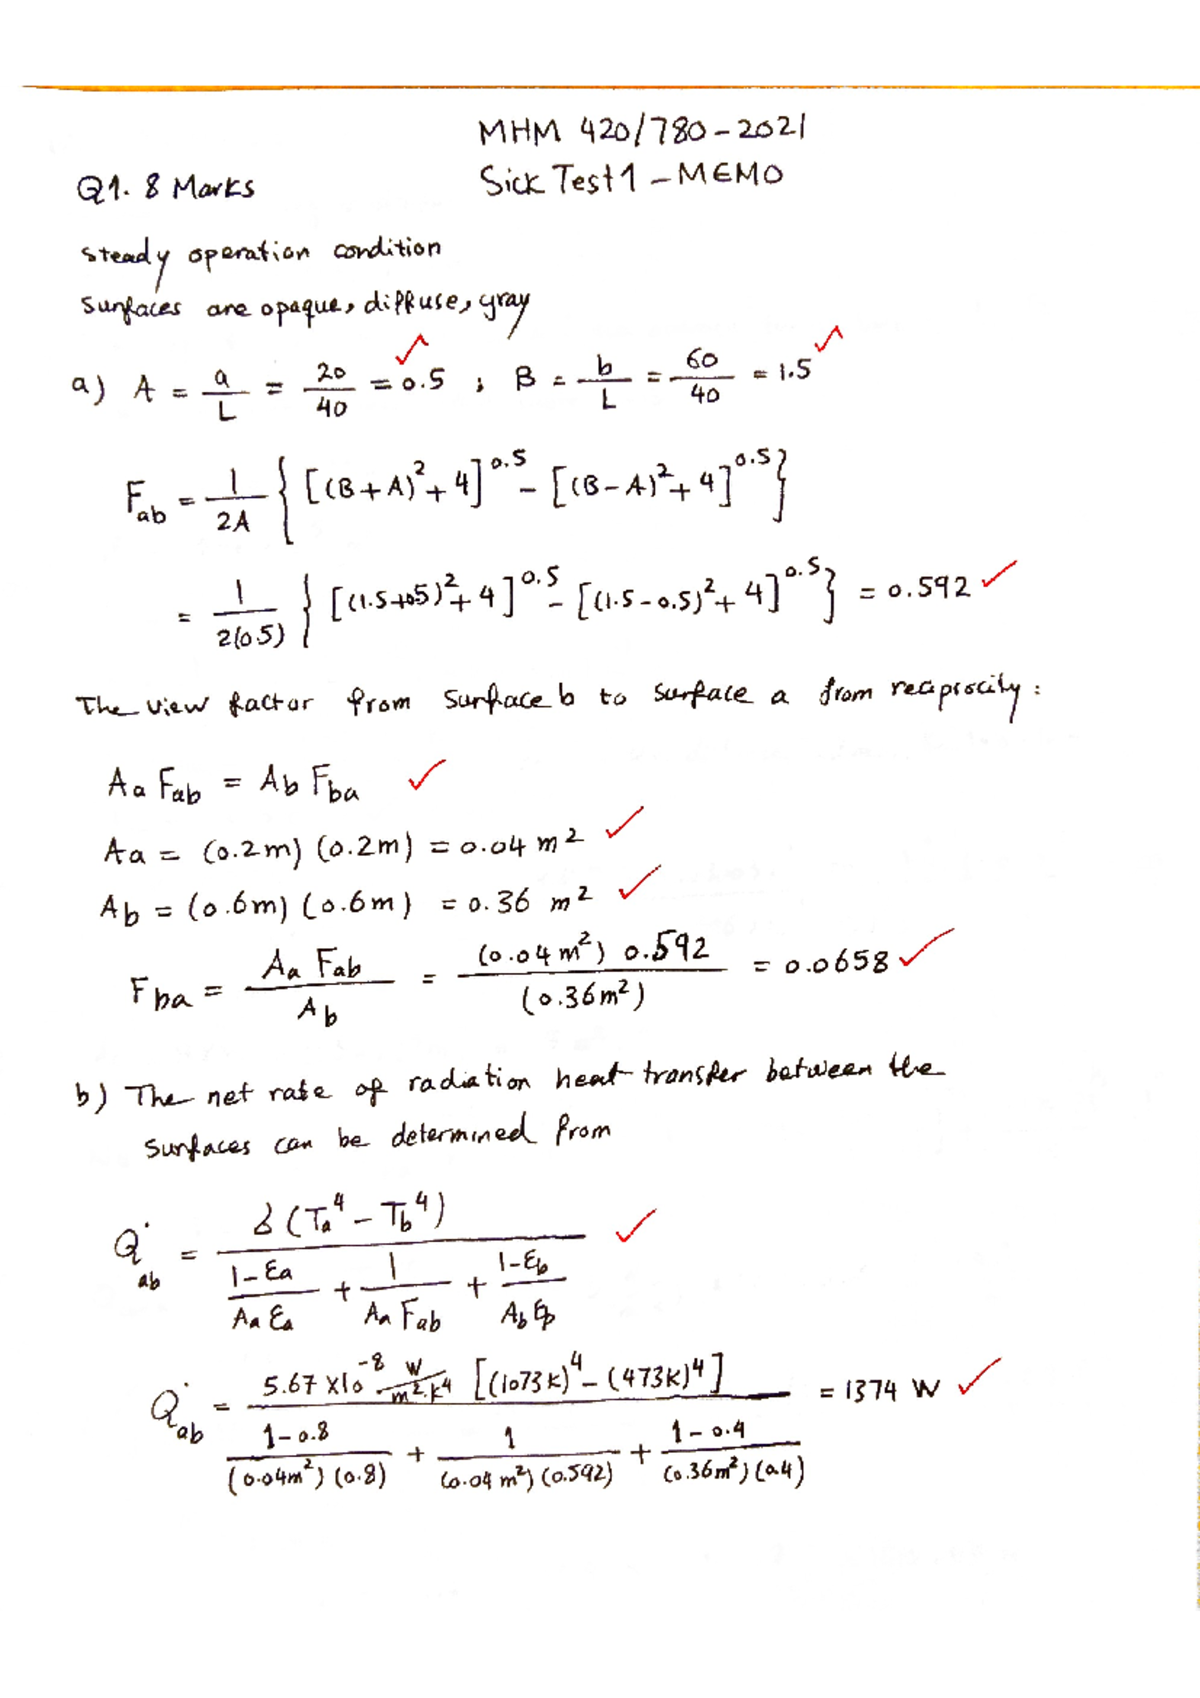 MHM 420/780-2021
Q1. 8 Marks
Sick Test 1 - MEMO
steady operation condition
Surfaces are opaque, diffuse, gray
a) A = a/L = 20/40 = 0.5 ; B = b/L = 60/40 = 1.5
F_ab = 1/2A { [(B+A)² + 4]^0.5 - [(B-A)² + 4]^0.5 }
= 1/2(0.5) { [(1.5+0.5)² + 4]^0.5 - [(1.5-0.5)² + 4]^0.5 } = 0.592
The view factor from Surface b to surface a from reciprocity:
Aa Fab = Ab Fba
Aa = (0.2m) (0.2m) = 0.04 m²
Ab = (0.6m) (0.6m) = 0.36 m²
Fba = Aa Fab / Ab = (0.04 m²) 0.592 / (0.36m²) = 0.0658
b) The net rate of radiation heat transfer between the
surfaces can be determined from
Q̇ab = δ (Ta⁴ - Tb⁴) / ( 1-εa / Aa εa + 1 / Aa Fab + 1-εb / Ab εb )
Q̇ab = 5.67 x10^-8 W/m².K⁴ [(1073K)⁴ - (473K)⁴] / ( 1-0.8 / (0.04m²) (0.8) + 1 / (0.04 m²) (0.592) + 1-0.4 / (0.36m²) (0.4) ) = 1374 W